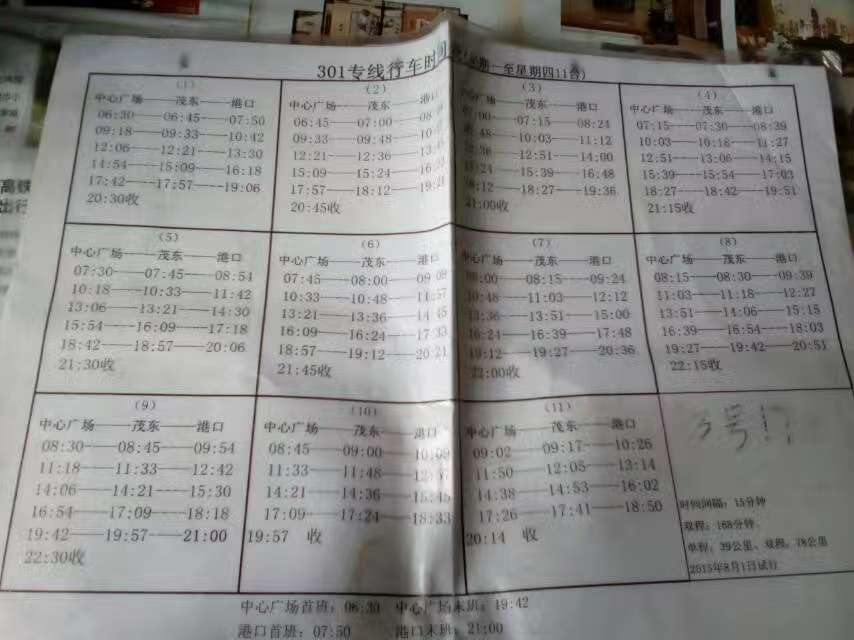 301专线行车时间 星期一至星期四11台)
(1)
中心广场——茂东——港口
06:30——06:45——07:50
09:18——09:33——10:42
12:06——12:21——13:30
14:54——15:09——16:18
17:42——17:57——19:06
20:30收
(2)
中心广场——茂东——港口
06:45——07:00——
09:33——09:48——
12:21——12:36——
15:09——15:24——
17:57——18:12——
20:45收
(3)
中心广场——茂东——港口
07:15——08:24
10:03——11:12
12:51——14:00
15:39——16:48
18:12——18:27——19:36
21:00收
(4)
中心广场——茂东——港口
07:15——07:30——08:39
10:03——10:18——11:27
12:51——13:06——14:15
15:39——15:54——17:03
18:27——18:42——19:51
21:15收
(5)
中心广场——茂东——港口
07:30——07:45——08:54
10:18——10:33——11:42
13:06——13:21——14:30
15:54——16:09——17:18
18:42——18:57——20:06
21:30收
(6)
中心广场——茂东——港口
07:45——08:00——09:09
10:33——10:48——11:57
13:21——13:36——14:45
16:09——16:24——17:33
18:57——19:12——20:21
21:45收
(7)
中心广场——茂东——港口
08:00——08:15——09:24
10:48——11:03——12:12
13:36——13:51——15:00
16:24——16:39——17:48
19:12——19:27——20:36
22:00收
(8)
中心广场——茂东——港口
08:15——08:30——09:39
11:03——11:18——12:27
13:51——14:06——15:15
16:39——16:54——18:03
19:27——19:42——20:51
22:15收
(9)
中心广场——茂东——港口
08:30——08:45——09:54
11:18——11:33——12:42
14:06——14:21——15:30
16:54——17:09——18:18
19:42——19:57——21:00
22:30收
(10)
中心广场——茂东——港口
08:45——09:00——10:09
11:33——11:48——
14:21——14:36——15:45
17:09——17:24——18:33
19:57 收
(11)
中心广场——茂东——港口
09:02——09:17——10:26
11:50——12:05——13:14
14:38——14:53——16:02
17:26——17:41——18:50
20:14 收
时间间隔：15分钟
双程：168分钟
单程：39公里、双程：78公里
2015年8月1日试行
中心广场首班：06:30 中心广场末班：19:42
港口首班：07:50 港口末班：21:00
高铁
出行